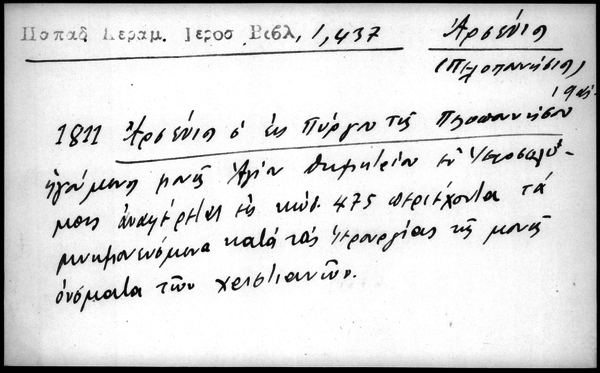 Παπαδ Κεραμ. Ιεροσ Βιβλ, 1,437
Ἀρσένιος
(Πελοποννήσιος)
19 αἰ.
1811 Ἀρσένιος ὁ ἐκ Πύργου τῆς Πελοποννήσου
ἡγούμενος μονῆς Ἁγίου Δημητρίου ἐν Ἱεροσολύ-
μοις ἀναφέρεται ἐν κώδ. 475 περιέχοντα τά
μνημονευόμενα κατά τάς ἱερουργίας τῆς μονῆς
ὀνόματα τῶν χριστιανῶν.